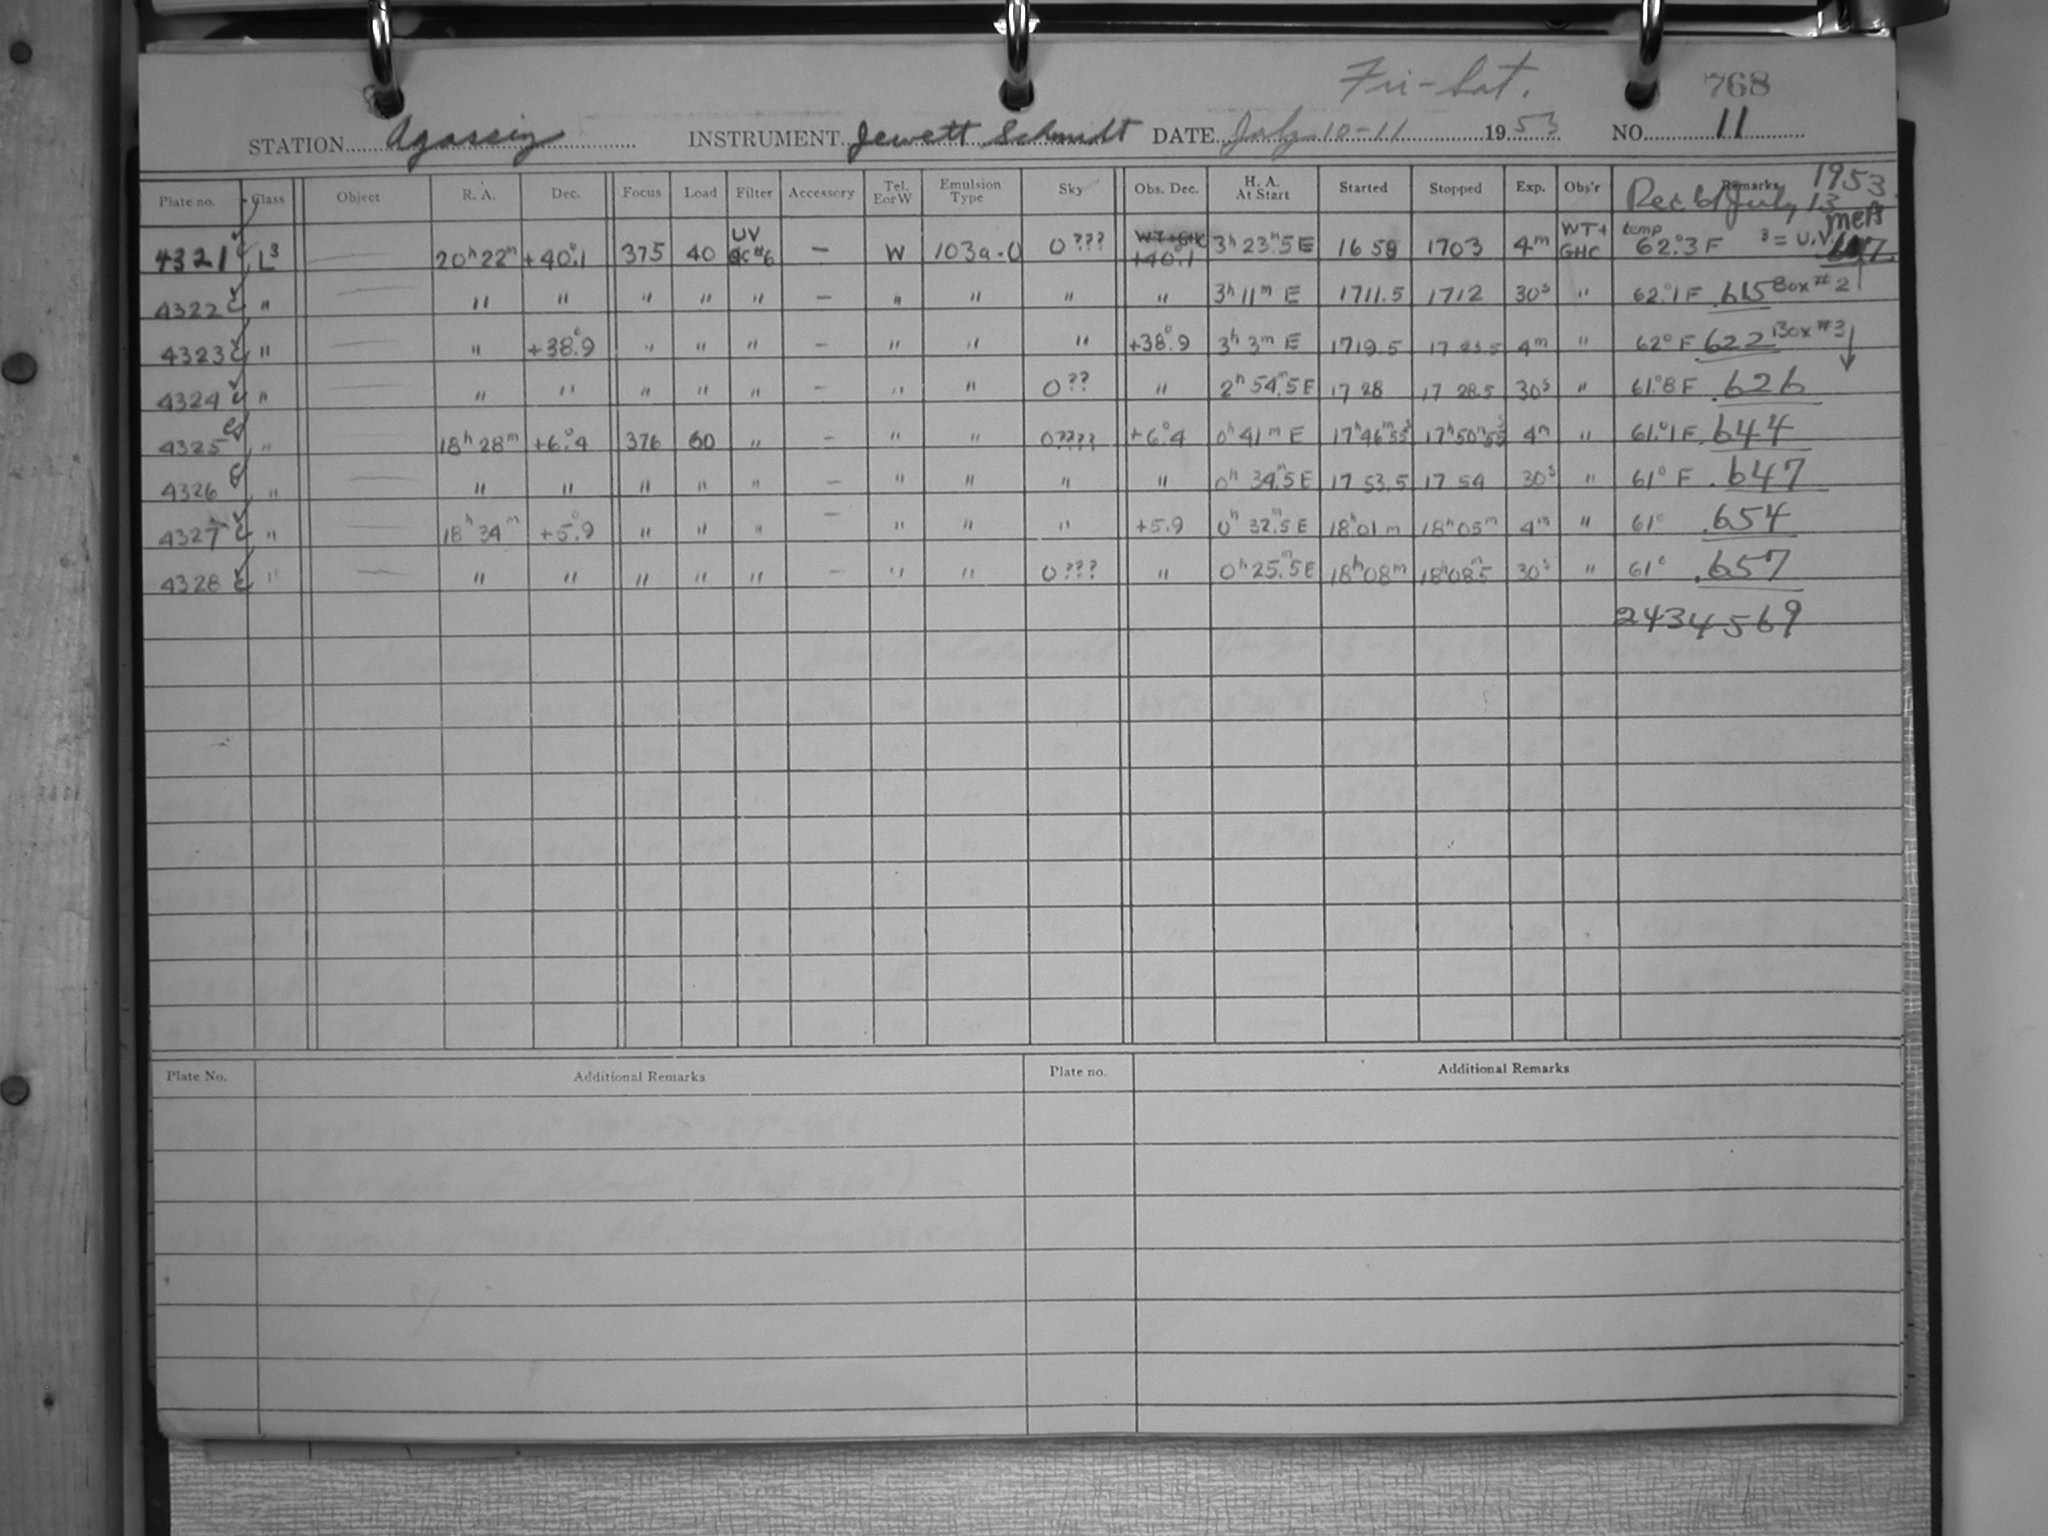 Fri-Sat. 768
STATION Agassiz INSTRUMENT Jewett Schmidt DATE July 10-11 1953 NO. 11
Plate no. Class Object R. A. Dec. Focus Load Filter Accessory Tel. E or W Emulsion Type Sky Obs. Dec. H. A. At Start Started Stopped Exp. Obs'r Remarks Rec'd July 13 1953 MeA
4321 L³ — 20ʰ22ᵐ +40°.1 375 40 UV GC#6 — W 103a-O 0??? WT+GHC +40.1 3ʰ 23ᵐ.5 E 16 59 1703 4ᵐ WT+GHC temp 62°.3 F ³ = U.V.
4322 " — " " " " " — " " " " 3ʰ 11ᵐ E 1711.5 1712 30ˢ " 62°.1 F .615 Box #2
4323 " — " +38°.9 " " " — " " " +38°.9 3ʰ 3ᵐ E 1719.5 17 23.5 4ᵐ " 62° F .622 Box #3
4324 " — " " " " " — " " 0?? " 2ʰ 54ᵐ.5 E 17 28 17 28.5 30ˢ " 61°.8 F .626
4325 " — 18ʰ 28ᵐ +6°.4 376 60 " — " " 0???? +6°.4 0ʰ 41ᵐ E 17ʰ46ᵐ55ˢ 17ʰ50ᵐ55ˢ 4ᵐ " 61°.1 F .644
4326 " — " " " " " — " " " " 0ʰ 34ᵐ.5 E 17 53.5 17 54 30ˢ " 61° F .647
4327 " — 18ʰ 34ᵐ +5°.9 " " " — " " " +5.9 0ʰ 32ᵐ.5 E 18ʰ01ᵐ 18ʰ05ᵐ 4ᵐ " 61° .654
4328 " — " " " " " — " " 0??? " 0ʰ 25ᵐ.5 E 18ʰ08ᵐ 18ʰ08ᵐ.5 30ˢ " 61° .657
2434569
Plate No. Additional Remarks Plate no. Additional Remarks